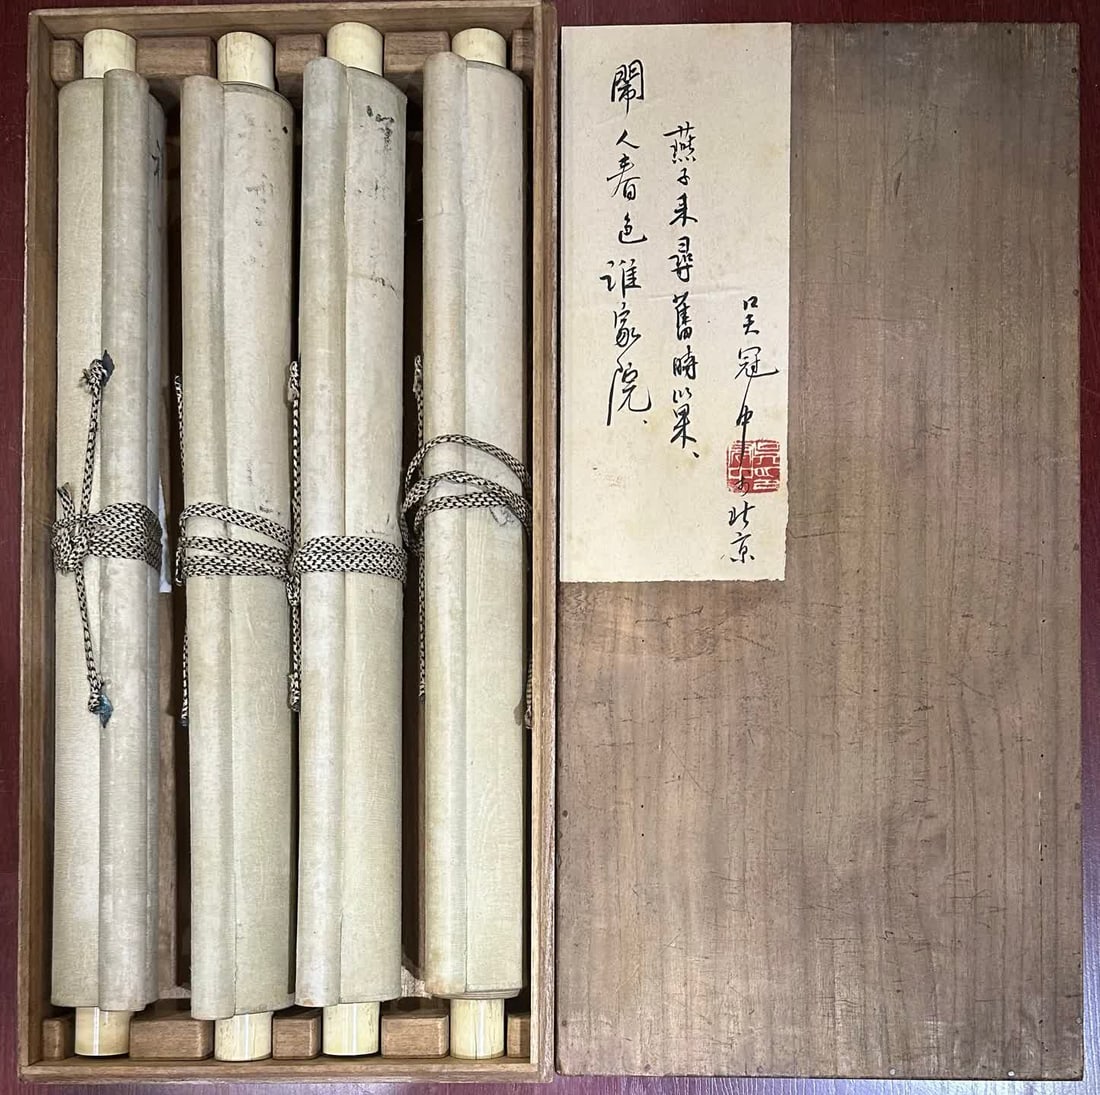 鬧人春色誰家院、
燕子来尋舊時巢、
吴冠中于北京